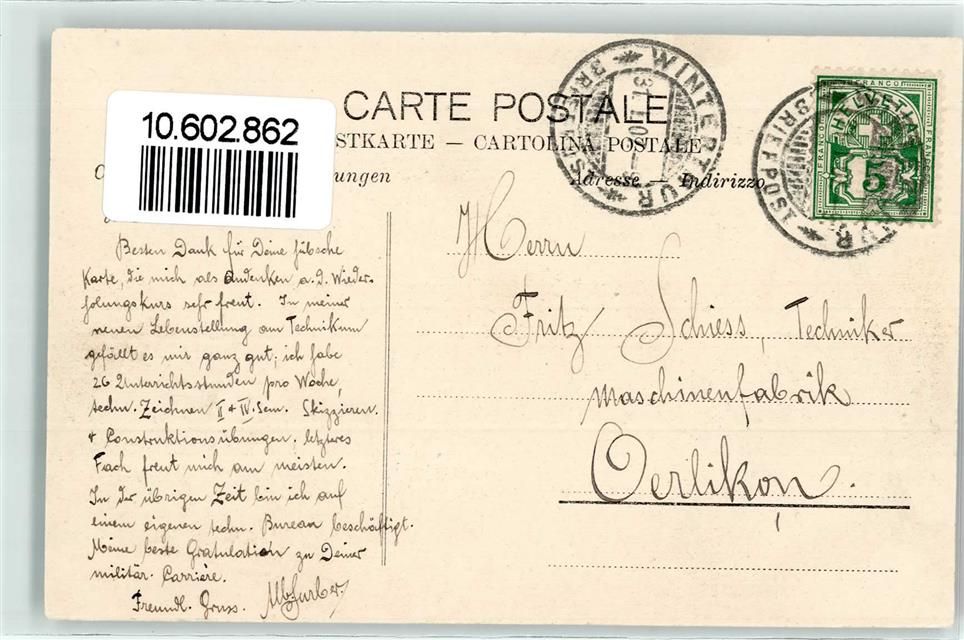 10.602.862
CARTE POSTALE
STKARTE — CARTOLINA POSTALE
ungen
Adresse — Indirizzo
WINTERTHUR
BRIEFPOST
FRANCO
HELVETIA
5
Besten Dank für Deine hübsche
Karte, die mich als Andenken a. d. Wieder-
holungskurs sehr freut. In meiner
neuen Lebenstellung am Technikum
gefällt es mir ganz gut; ich habe
26 Unterrichtsstunden pro Woche,
techn. Zeichnen II + IV. Sem. Skizzieren
+ Construktionsübungen. letzteres
Fach freut mich am meisten.
In der übrigen Zeit bin ich auf
einem eigenen techn. Bureau beschäftigt.
Meine beste Gratulation zu Deiner
militär. Carrière.
Freundl. Gruss.
Herrn
Fritz Schiess, Techniker
Maschinenfabrik
Oerlikon.